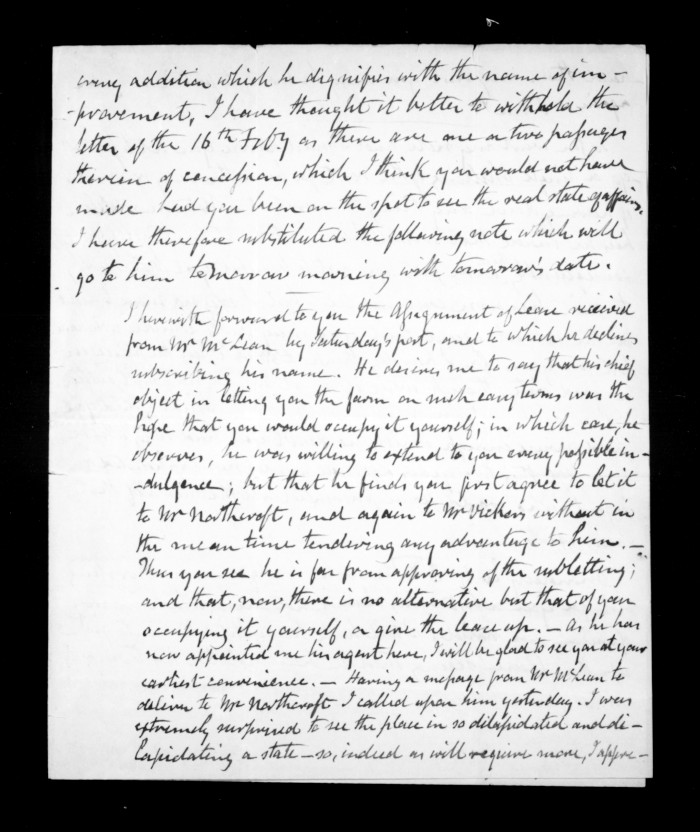 every addition which he dignifies with the name of im-
-provement, I have thought it better to withhold the
letter of the 16th Feby as there are one or two passages
therein of concession, which I think you would not have
made had you been on the spot to see the real state of affairs.
I have therefore substituted the following note which will
go to him tomorrow morning with tomorrow's date.
I herewith forward to you the Assignment of Lease received
from Mr McLean by Saturday's post, and to which he declines
subscribing his name. He desires me to say that his chief
object in letting you the farm on such easy terms was the
hope that you would occupy it yourself; in which case, he
observes, he was willing to extend to you every possible in-
-dulgence; but that he finds you first agree to let it
to Mr Northcroft, and again to Mr Vickers without in
the mean time tendering any advantage to him. -
Thus you see he is far from approving of the subletting;
and that, now, there is no alternative but that of your
occupying it yourself, or give the lease up. - As he has
now appointed me his agent here, I will be glad to see you at your
earliest convenience. - Having a message from Mr McLean to
deliver to Mr Northcroft I called upon him yesterday. I was
extremely surprised to see the place in so dilapidated and di-
lapidating a state - so, indeed as will require more, I appre-